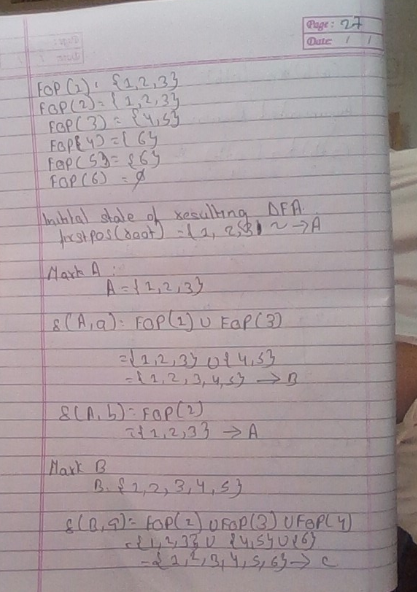 Page: 27
Date: / /
FOP(1): {1,2,3}
FOP(2) = {1,2,3}
FOP(3) = {4,5}
FOP(4) = {6}
FOP(5) = {6}
FOP(6) = ∅
Initial state of resulting DFA
firstpos(root) = {1, 2,3} ~ → A
Mark A :
A = {1,2,3}
δ(A,a) = FOP(1) ∪ FOP(3)
= {1,2,3} ∪ {4,5}
= {1,2,3,4,5} → B
δ(A,b) = FOP(2)
= {1,2,3} → A
Mark B
B. {1,2,3,4,5}
δ(B,a) = FOP(1) ∪ FOP(3) ∪ FOP(4)
= {1,2,3} ∪ {4,5} ∪ {6}
= {1,2,3,4,5,6} → C